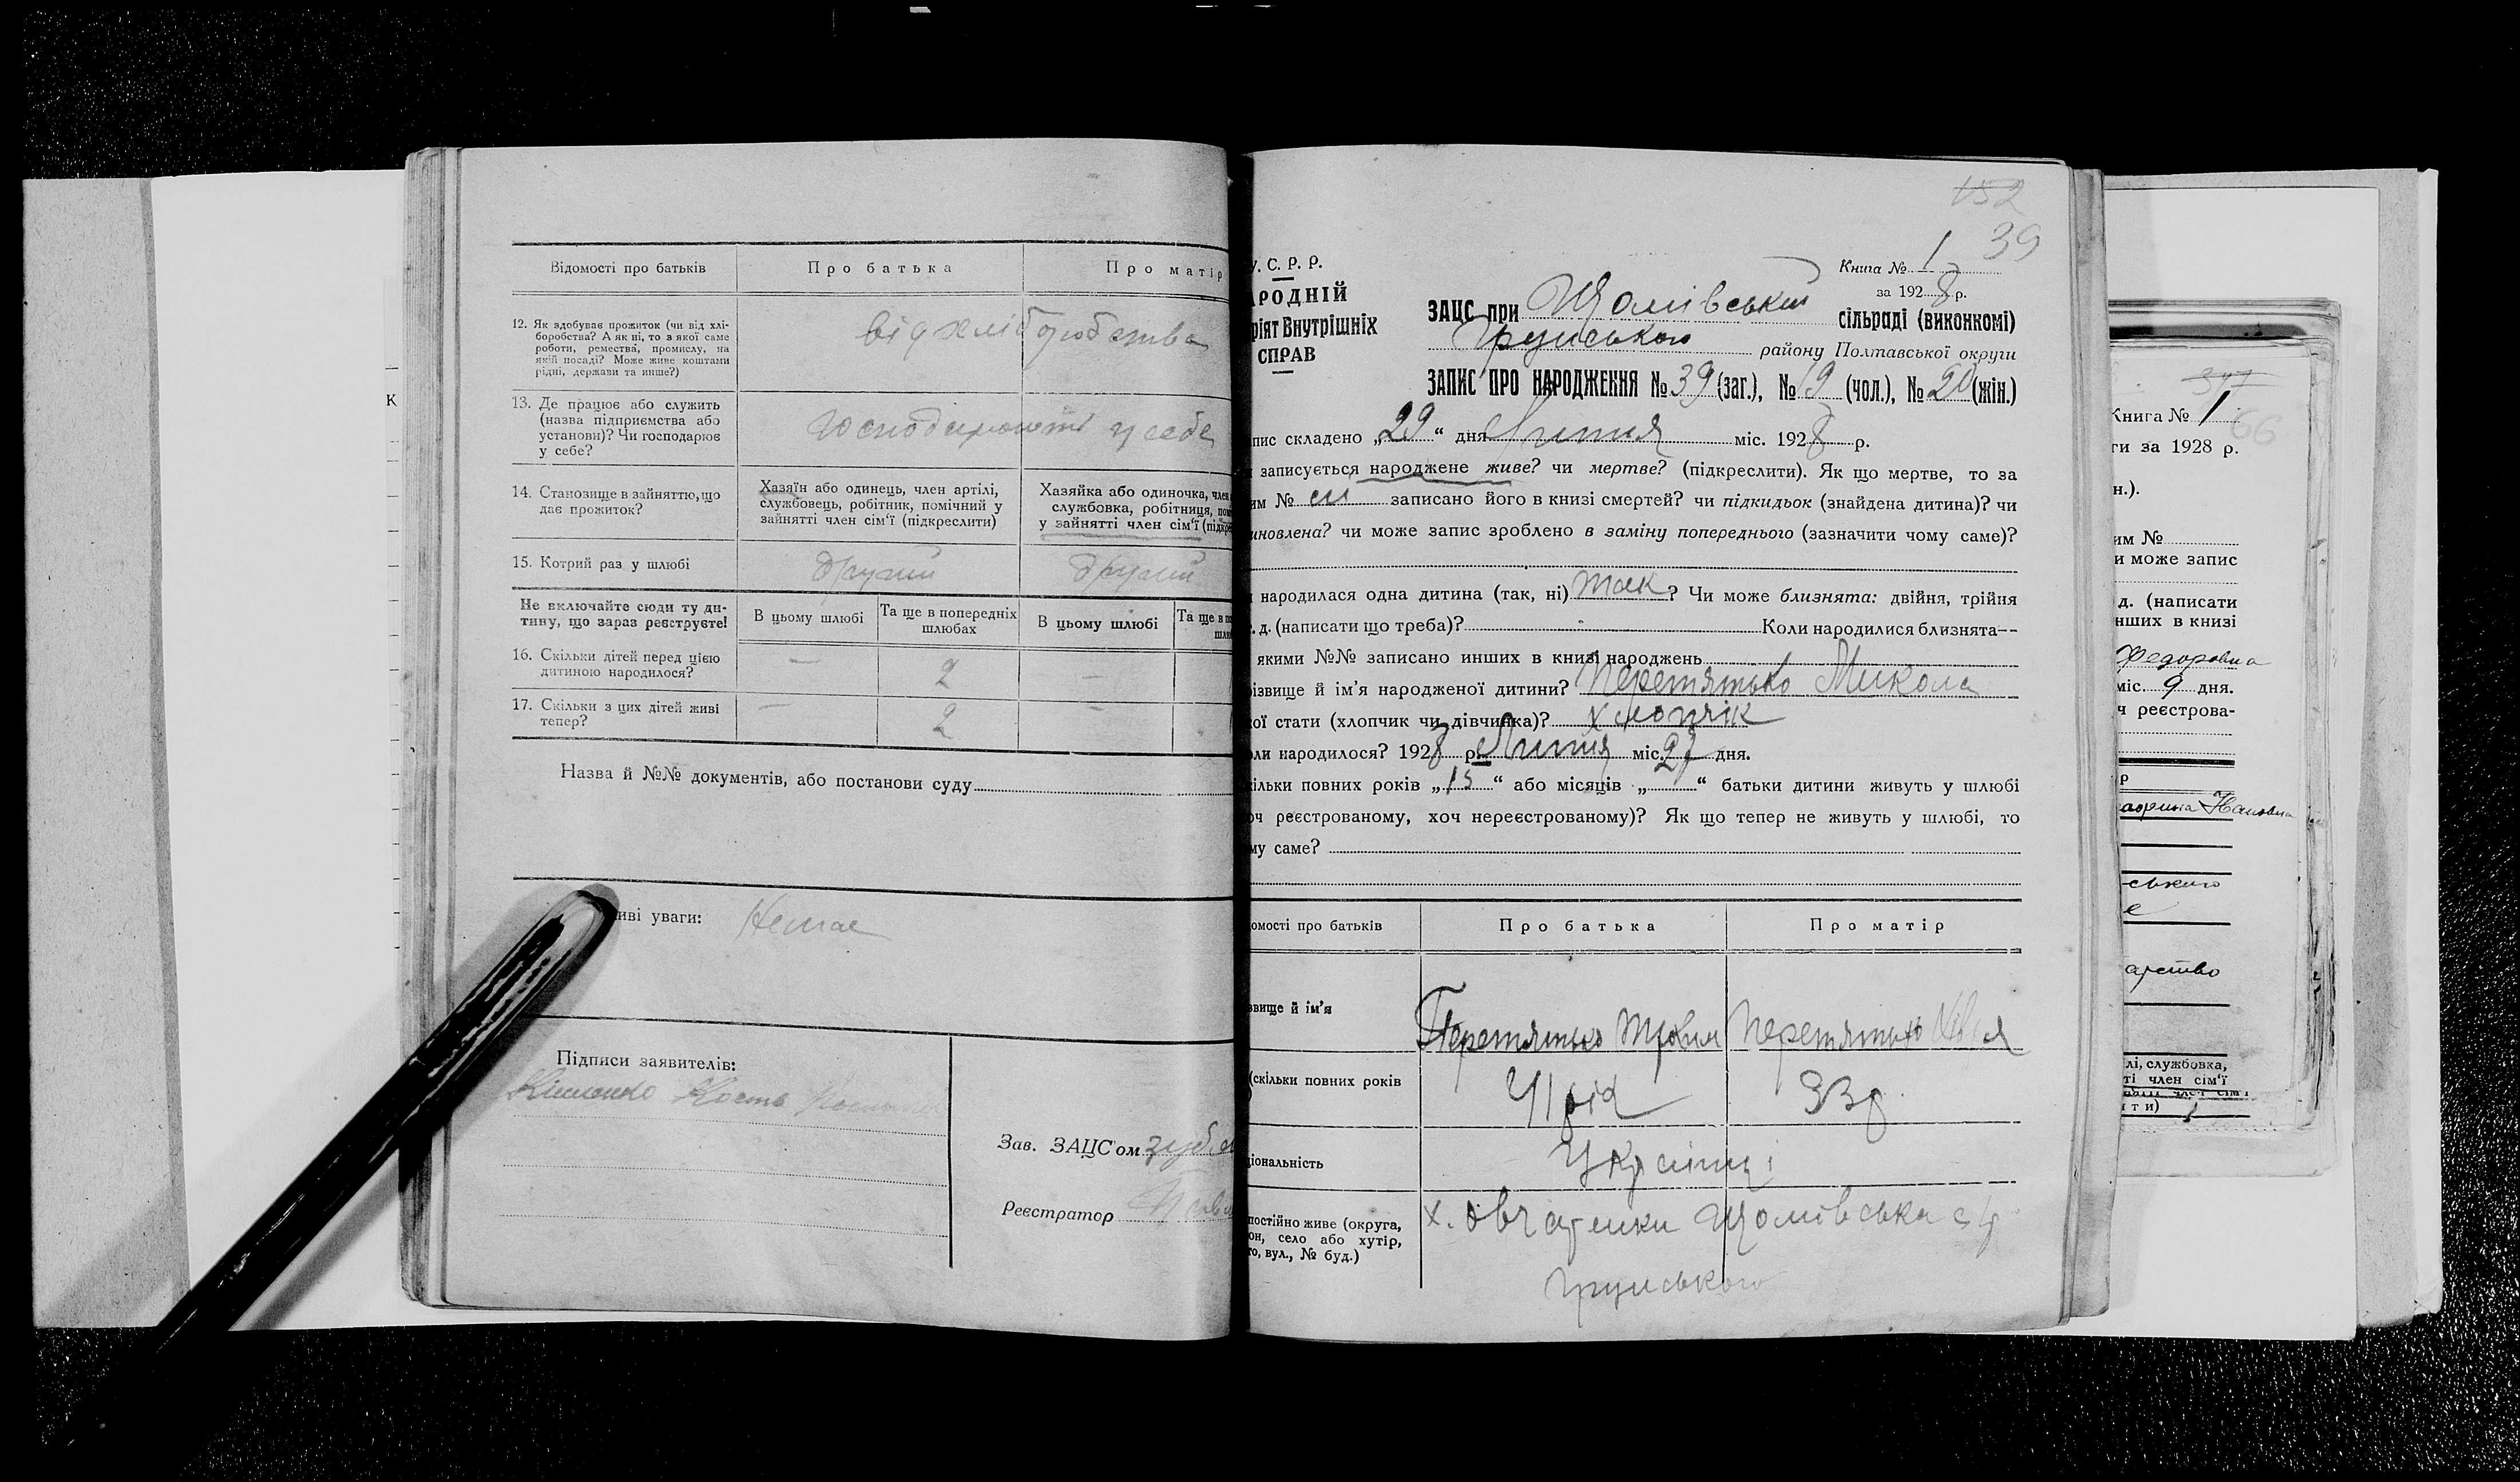 Відомості про батьків
Про батька
Про матір
12. Як здобуває прожиток (чи від хлі-
боробства? А як ні, то з якої саме
роботи, ремества, промислу, на
якій посаді? Може живе коштами
рідні, держави та инше?)
від хліборобства
13. Де працює або служить
(назва підприємства або
установи)? Чи господарює
у себе?
у себе
14. Становище в зайняттю, що
дає прожиток?
Хазяїн або одинець, член артілі,
службовець, робітник, помічний у
зайнятті член сім'ї (підкреслити)
Хазяйка або одиночка, член
службовка, робітниця, пом
у зайнятті член сім'ї (підкре
15. Котрий раз у шлюбі
другий
другий
Не включайте сюди ту ди-
тину, що зараз реєструєте!
В цьому шлюбі
Та ще в попередніх
шлюбах
В цьому шлюбі
Та ще в по
шлю
16. Скільки дітей перед цією
дитиною народилося?
— 2 —
17. Скільки з цих дітей живі
тепер?
— 2 —
Назва й №№ документів, або постанови суду
иві уваги: Немає
Підписи заявителів:
Кость
Зав. ЗАЦС'ом
Реєстратор
152
39
У. С. Р. Р.
АРОДНІЙ
ріят Внутрішніх
СПРАВ
Книга № 1
за 1928 р.
ЗАЦС при Щомівській сільраді (виконкомі)
Грунського району Полтавської округи
ЗАПИС ПРО НАРОДЖЕННЯ № 39 (заг.), № 19 (чол.), № 20 (жін.)
пис складено „29“ дня Липня міс. 1928 р.
записується народжене живе? чи мертве? (підкреслити). Як що мертве, то за
им № записано його в книзі смертей? чи підкидьок (знайдена дитина)? чи
иновлена? чи може запис зроблено в заміну попереднього (зазначити чому саме)?
народилася одна дитина (так, ні) так? Чи може близнята: двійня, трійня
т. д. (написати що треба)? Коли народилися близнята—
якими №№ записано инших в книзі народжень
ізвище й ім'я народженої дитини? Перетятько Микола
кої стати (хлопчик чи дівчинка)? хлопчік
оли народилося? 1928 р. Липня міс. 27 дня.
кільки повних років „15“ або місяців „ “ батьки дитини живуть у шлюбі
оч реєстрованому, хоч нереєстрованому)? Як що тепер не живуть у шлюбі, то
му саме?
омості про батьків
Про батька
Про матір
звище й ім'я
Перетятько Трохим
Перетятько
(скільки повних років
41 рік
33 р
ціональність
Українці
постійно живе (округа,
он, село або хутір,
то, вул., № буд.)
х. Овчаренки Щомівська с/р
Грунського
К
347
Книга № 1
66
ги за 1928 р.
н.).
им №
и може запис
д. (написати
нших в книзі
Федоровна
міс. 9 дня.
ч реєстрова-
р
ського
е
арство
лі, службовка,
ті член сім'ї
ити)